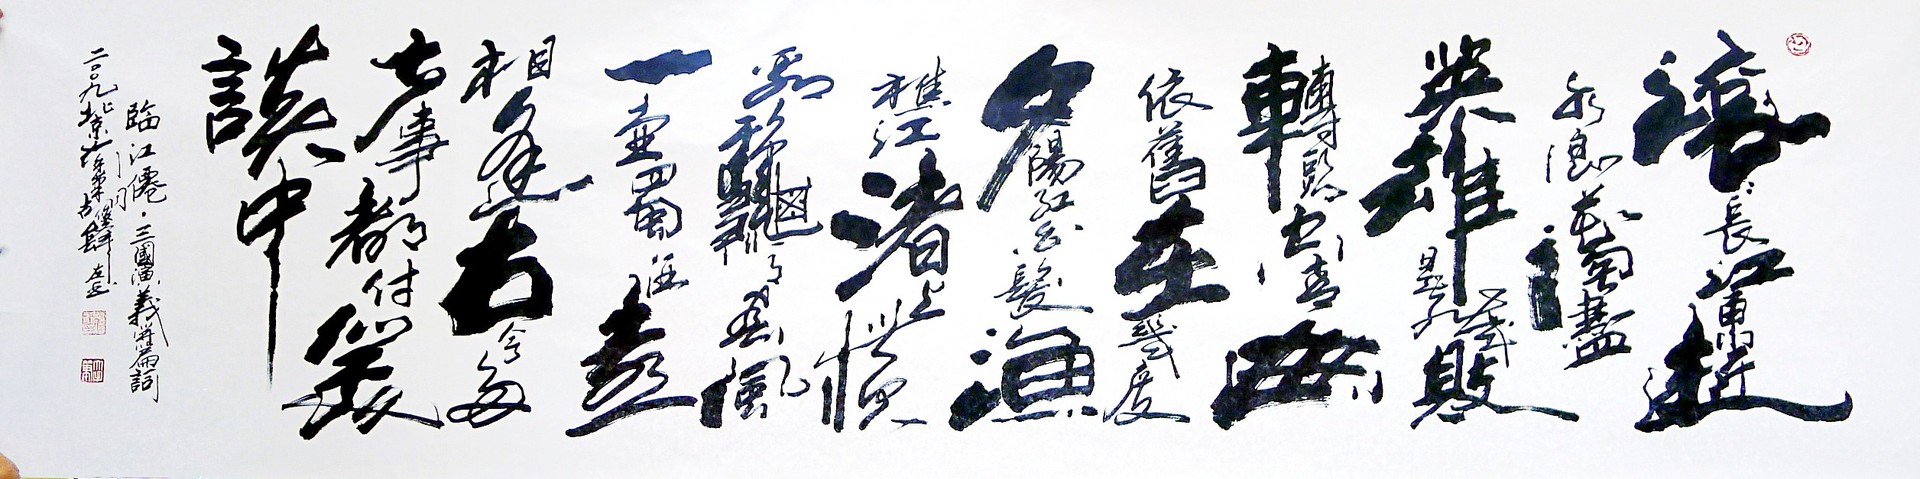 滾〻長江東逝
水浪花淘盡
英雄是非成敗
轉頭空青山
依舊在幾度
夕陽紅白髮漁
樵江渚上慣
看秋月春風
一壺濁酒喜
相逢古今多
少事都付笑
談中
臨江僊·三國演義開篇詞
二〇〇九北京